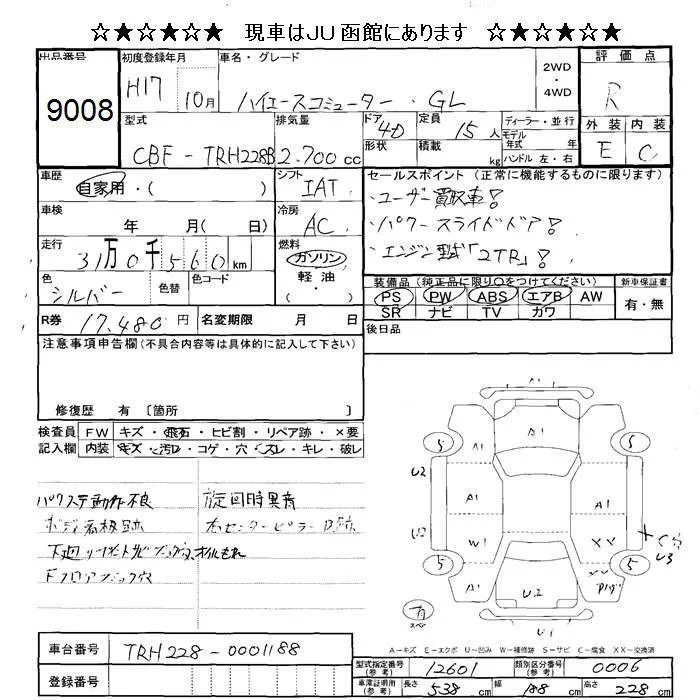 ☆★☆★☆★ 現車はJU函館にあります ☆★☆★☆★
出品番号 初度登録年月 車名・グレード 2WD・4WD 評価点
9008 H17 10月 ハイエースコミューター・GL R
型式 排気量 ドア 4D 定員 15人 ディーラー・並行 外装 内装
モデル年式 年
CBF-TRH228B 2.700cc 形状 積載 kg ハンドル 左・右 E C
車歴 シフト セールスポイント (正常に機能するものに限ります)
自家用・( ) IAT ・ユーザー買取車!
車検 冷房 ・パワースライドドア!
年 月( 日) AC ・エンジン型式「2TR」!
走行 燃料
31万0千560km ガソリン
色 色替 色コード 軽・油
シルバー ( )
装備品 (純正品に限り○をつけてください) 新車保証書
PS PW ABS エアB AW 有・無
SR ナビ TV カワ
R券 17,480円 名変期限 月 日 後日品
注意事項申告欄(不具合内容等は具体的に記入して下さい)
修復歴 有 〔箇所 〕
検査員 FW キズ・飛石・ヒビ割・リペア跡・×要
記入欄 内装 キズ・汚れ・コゲ・穴・スレ・キレ・破レ
パワステ動作不良 旋回時異音
ボディ看板跡 右センターピラー
下廻り オイルもれ
穴
A1
5 A1 A1 A1 5
U2
A1 A1
U3
W1 XX U3
5 5
A1 U2
有 スペア
U1
A-キズ E-エクボ U-凹み W-補修跡 S-サビ C-腐食 XX-交換済
車台番号 TRH228-0001188
登録番号
型式指定番号(参考) 12601 類別区分番号(参考) 0006
車庫証明用(参考) 長さ 538cm 幅 188cm 高さ 228cm